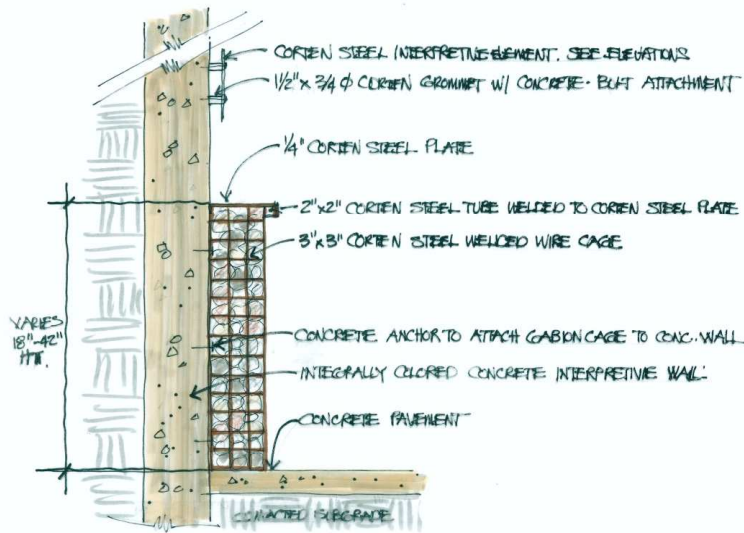 CORTEN STEEL INTERPRETIVE ELEMENT. SEE ELEVATIONS
1 1/2" x 3/4 Φ CORTEN GROMMET W/ CONCRETE-BOLT ATTACHMENT
1/4" CORTEN STEEL PLATE
2"x2" CORTEN STEEL TUBE WELDED TO CORTEN STEEL PLATE
3"x3" CORTEN STEEL WELDED WIRE CAGE
VARIES
18"-42"
HT.
CONCRETE ANCHOR TO ATTACH GABION CAGE TO CONC. WALL
INTEGRALLY COLORED CONCRETE INTERPRETIVE WALL
CONCRETE PAVEMENT
COMPACTED SUBGRADE